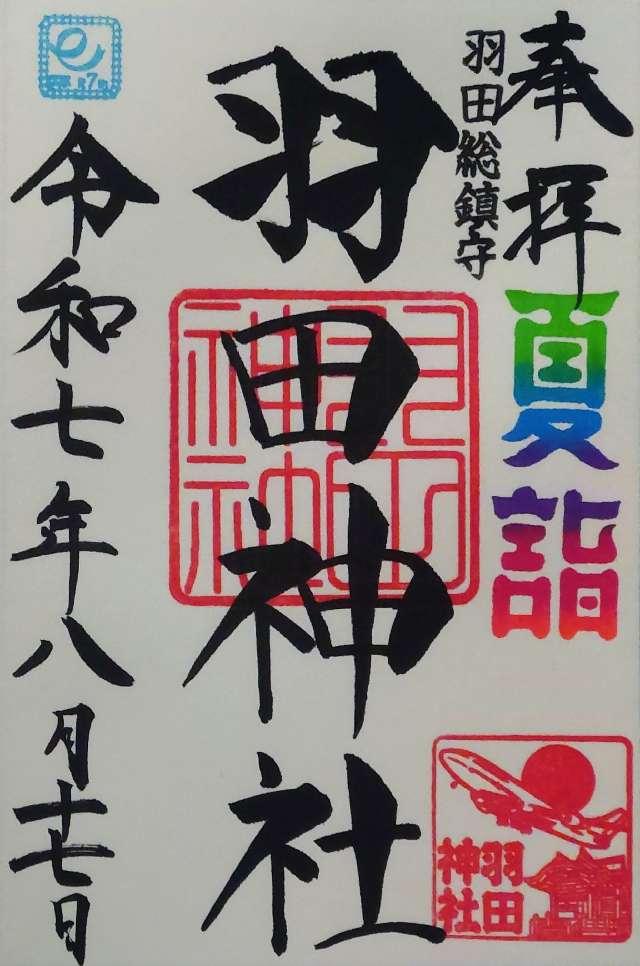 奉拝
夏詣
羽田総鎮守
羽田神社
羽田
神社
令和七年八月十七日
羽田
神社